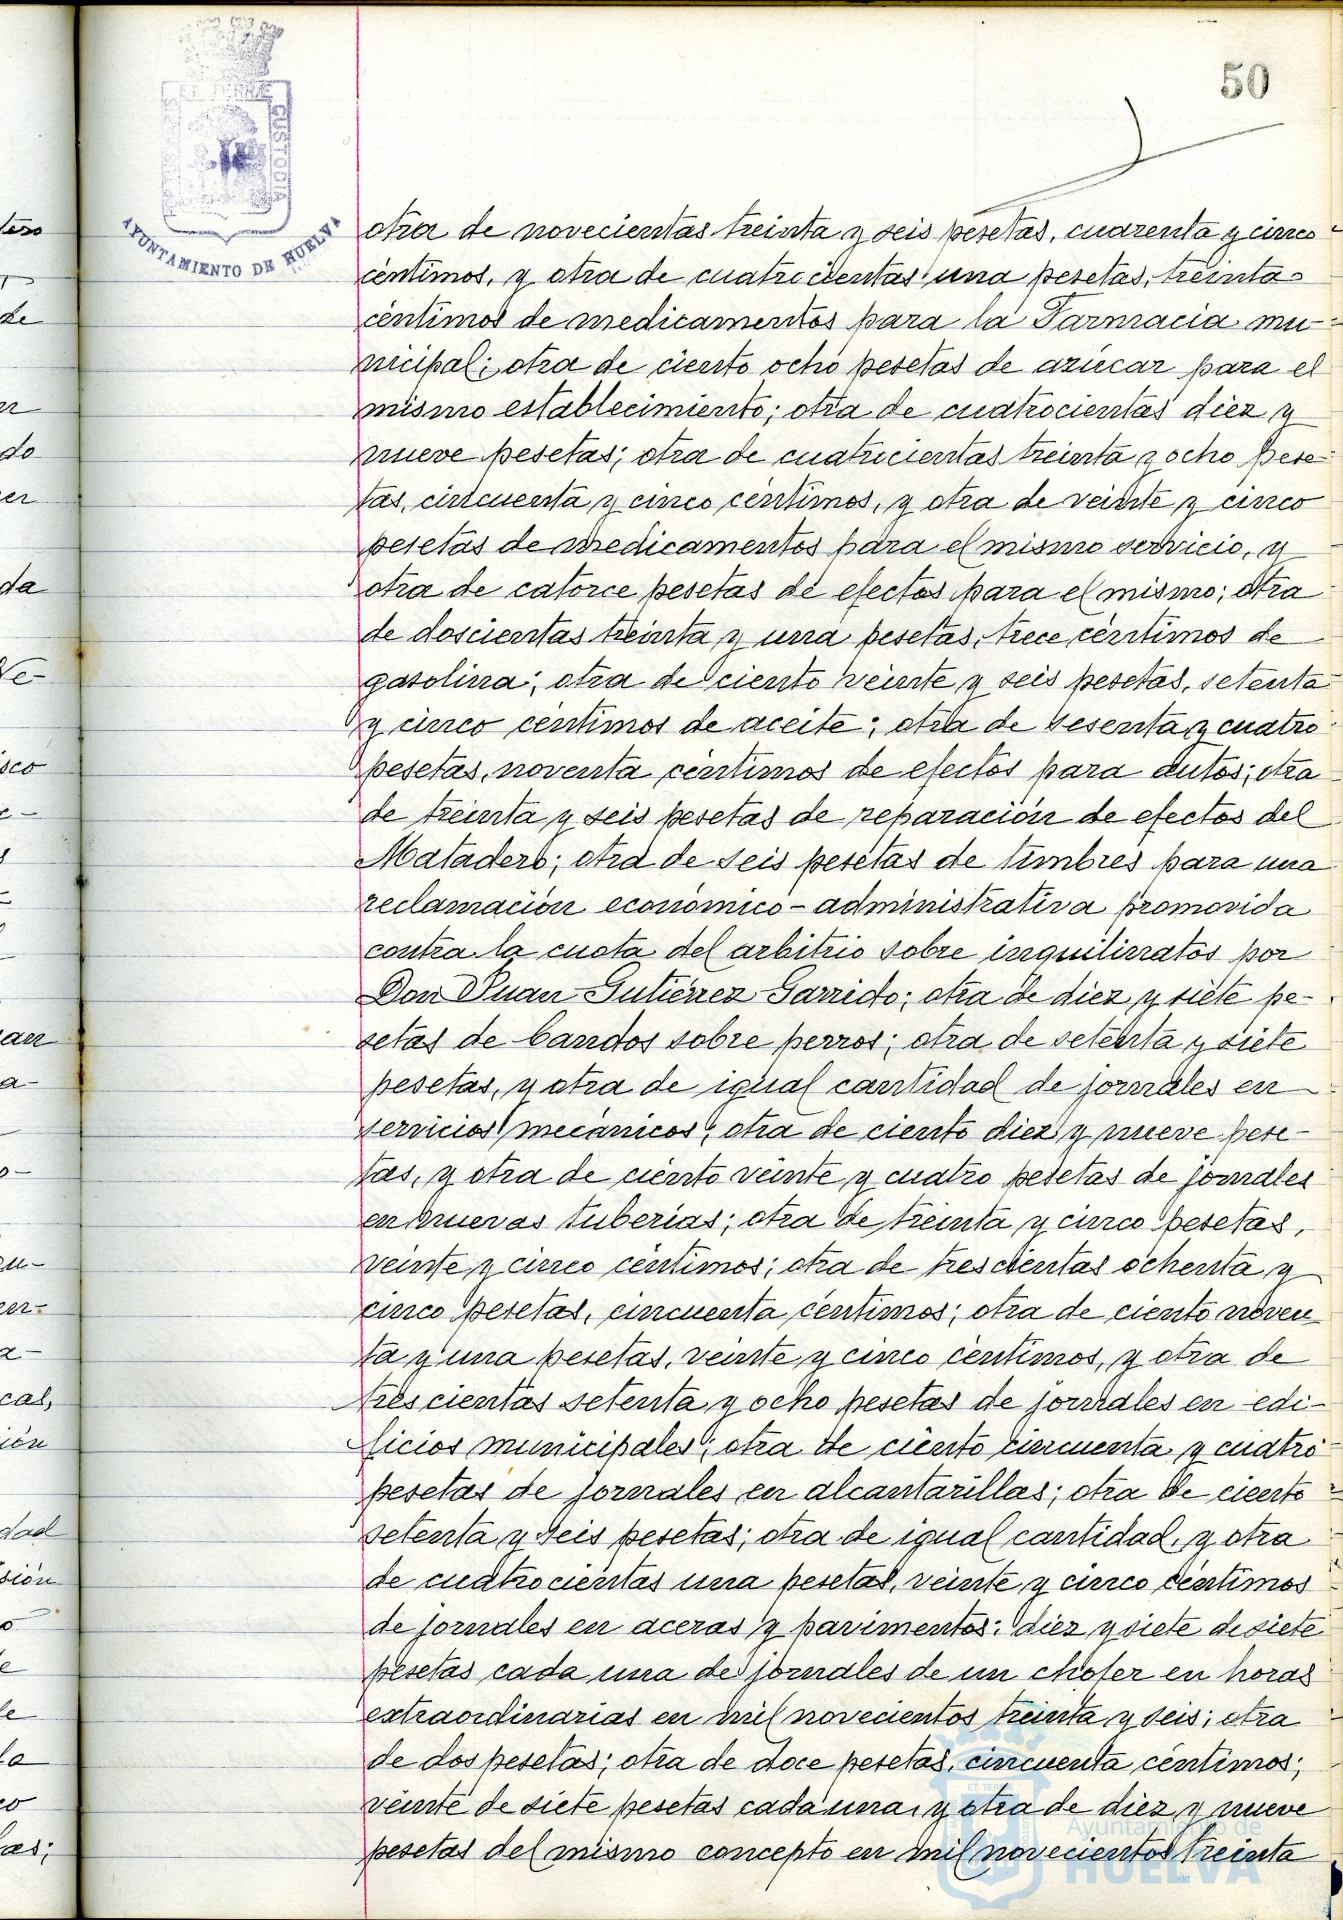 50
ET TERRÆ
CUSTODIA
AYUNTAMIENTO DE HUELVA
otra de novecientas treinta y seis pesetas, cuarenta y cinco
céntimos, y otra de cuatrocientas una pesetas, treinta
céntimos de medicamentos para la Farmacia mu-
nicipal; otra de ciento ocho pesetas de azúcar para el
mismo establecimiento; otra de cuatrocientas diez y
nueve pesetas; otra de cuatrocientas treinta y ocho pese-
tas, cincuenta y cinco céntimos, y otra de veinte y cinco
pesetas de medicamentos para el mismo servicio, y
otra de catorce pesetas de efectos para el mismo; otra
de doscientas treinta y una pesetas, trece céntimos de
gasolina; otra de ciento veinte y seis pesetas, setenta
y cinco céntimos de aceite; otra de sesenta y cuatro
pesetas, noventa céntimos de efectos para autos; otra
de treinta y seis pesetas de reparación de efectos del
Matadero; otra de seis pesetas de timbres para una
reclamación económico-administrativa promovida
contra la cuota del arbitrio sobre inquilinatos por
Don Juan Gutiérrez Garrido; otra de diez y siete pe-
setas de bandos sobre perros; otra de setenta y siete
pesetas, y otra de igual cantidad de jornales en
servicios mecánicos; otra de ciento diez y nueve pese-
tas, y otra de ciento veinte y cuatro pesetas de jornales
en nuevas tuberías; otra de treinta y cinco pesetas,
veinte y cinco céntimos; otra de trescientas ochenta y
cinco pesetas, cincuenta céntimos; otra de ciento noven-
ta y una pesetas, veinte y cinco céntimos, y otra de
trescientas setenta y ocho pesetas de jornales en edi-
ficios municipales; otra de ciento cincuenta y cuatro
pesetas de jornales en alcantarillas; otra de ciento
setenta y seis pesetas; otra de igual cantidad, y otra
de cuatrocientas una pesetas, veinte y cinco céntimos
de jornales en aceras y pavimentos; diez y siete de siete
pesetas cada una de jornales de un chofer en horas
extraordinarias en mil novecientos treinta y seis; otra
de dos pesetas; otra de doce pesetas, cincuenta céntimos;
veinte de siete pesetas cada una, y otra de diez y nueve
pesetas del mismo concepto en mil novecientos treinta
Ayuntamiento de
HUELVA